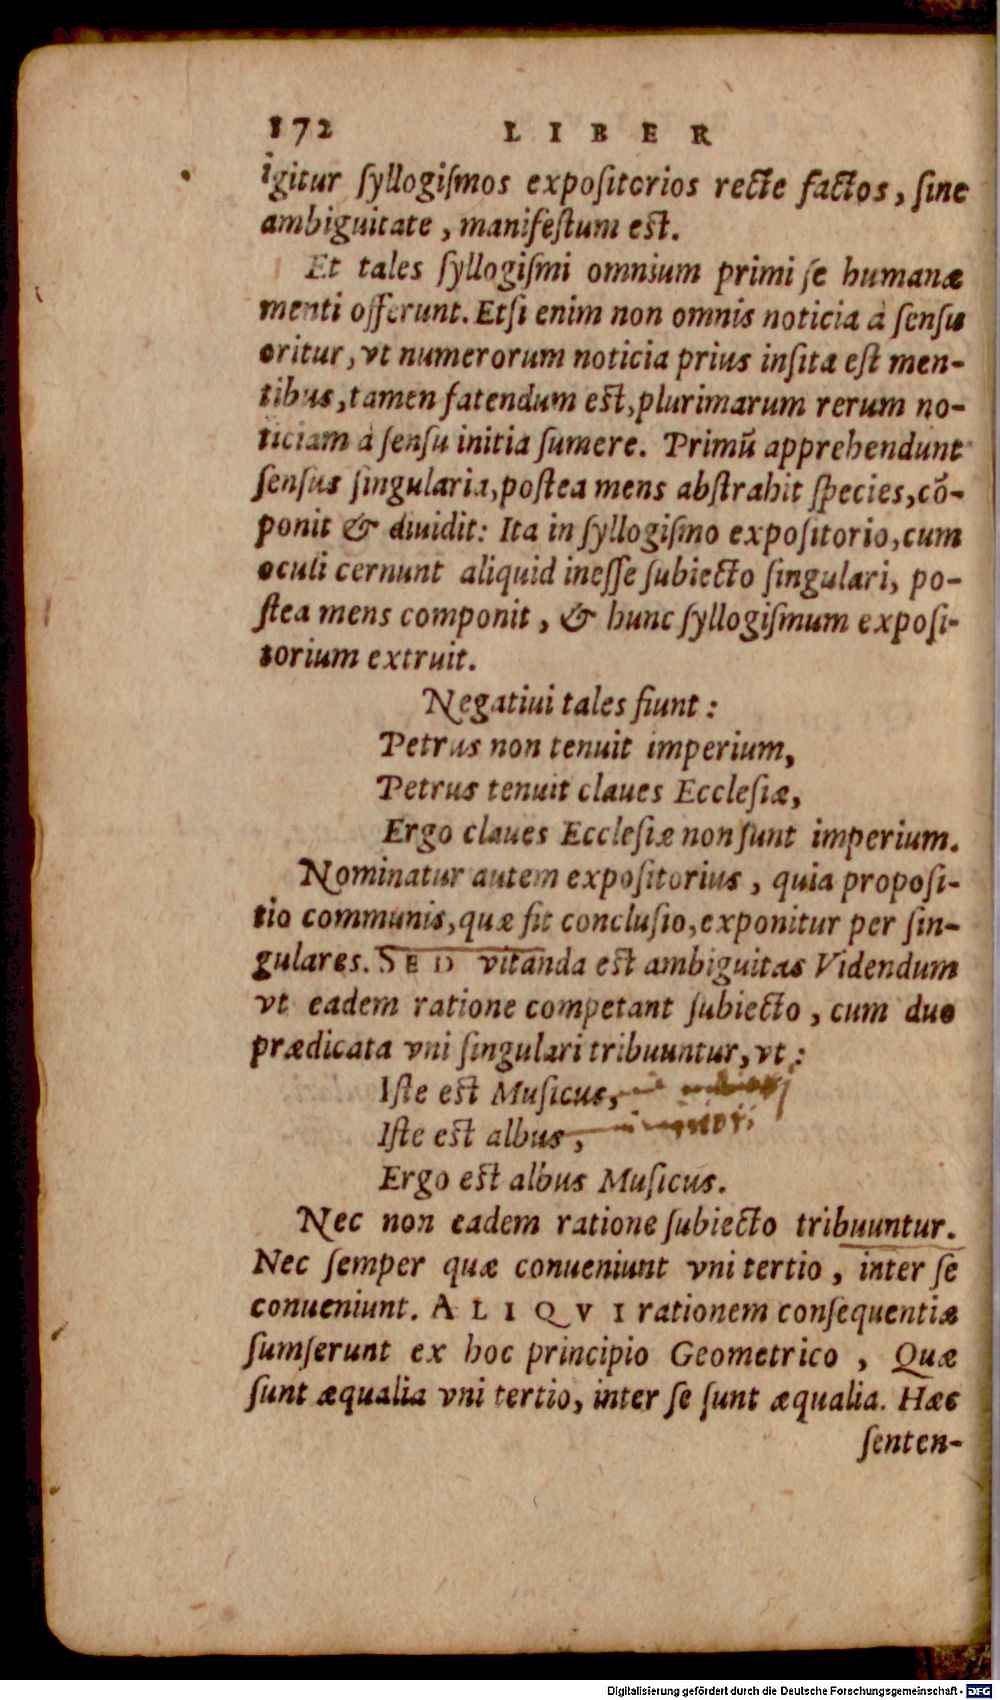 172 LIBER
igitur syllogiſmos expoſitorios recte factos, ſine
ambiguitate, manifeſtum eſt.
Et tales ſyllogiſmi omnium primi ſe humanæ
menti offerunt. Etſi enim non omnis noticia à ſenſu
oritur, vt numerorum noticia prius inſita eſt men-
tibus, tamen fatendum eſt, plurimarum rerum no-
ticiam à ſenſu initia ſumere. Primū apprehendunt
ſenſus ſingularia, poſtea mens abſtrahit ſpecies, cō-
ponit & diuidit: Ita in ſyllogiſmo expoſitorio, cum
oculi cernunt aliquid ineſſe ſubiecto ſingulari, po-
ſtea mens componit, & hunc ſyllogiſmum expoſi-
torium extruit.
Negatiui tales fiunt:
Petrus non tenuit imperium,
Petrus tenuit claues Eccleſiæ,
Ergo claues Eccleſiæ non ſunt imperium.
Nominatur autem expoſitorius, quia propoſi-
tio communis, quæ fit concluſio, exponitur per ſin-
gulares. SED vitanda eſt ambiguitas Videndum
vt eadem ratione competant ſubiecto, cum duo
prædicata vni ſingulari tribuuntur, vt:
Iſte eſt Muſicus,
Iſte eſt albus,
Ergo eſt albus Muſicus.
Nec non eadem ratione ſubiecto tribuuntur.
Nec ſemper quæ conueniunt vni tertio, inter ſe
conueniunt. ALIQVI rationem conſequentiæ
ſumſerunt ex hoc principio Geometrico, Quæ
ſunt æqualia vni tertio, inter ſe ſunt æqualia. Hæc
ſenten-
Digitalisierung gefördert durch die Deutsche Forschungsgemeinschaft - DFG